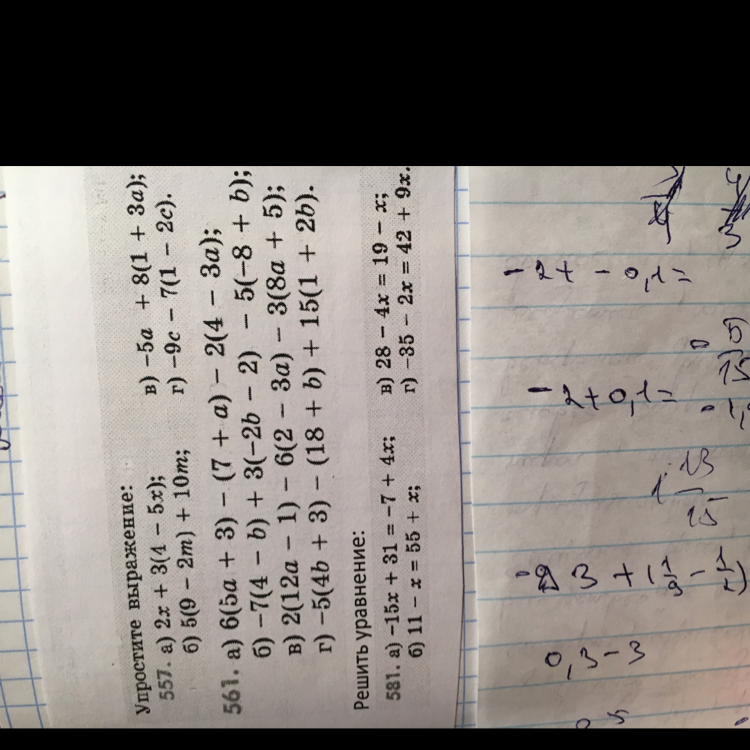 Упростите выражение:
557. а) 2x + 3(4 − 5x); в) −5a + 8(1 + 3a);
б) 5(9 − 2m) + 10m; г) −9c − 7(1 − 2c).
561. а) 6(5a + 3) − (7 + a) − 2(4 − 3a);
б) −7(4 − b) + 3(−2b − 2) − 5(−8 + b);
в) 2(12a − 1) − 6(2 − 3a) − 3(8a + 5);
г) −5(4b + 3) − (18 + b) + 15(1 + 2b).
Решить уравнение:
581. а) −15x + 31 = −7 + 4x; в) 28 − 4x = 19 − x;
б) 11 − x = 55 + x; г) −35 − 2x = 42 + 9x.
−2 + −0,1=
−2+0,1=
1 13/15
3 + (1/3 − 1/2)
0,3−3